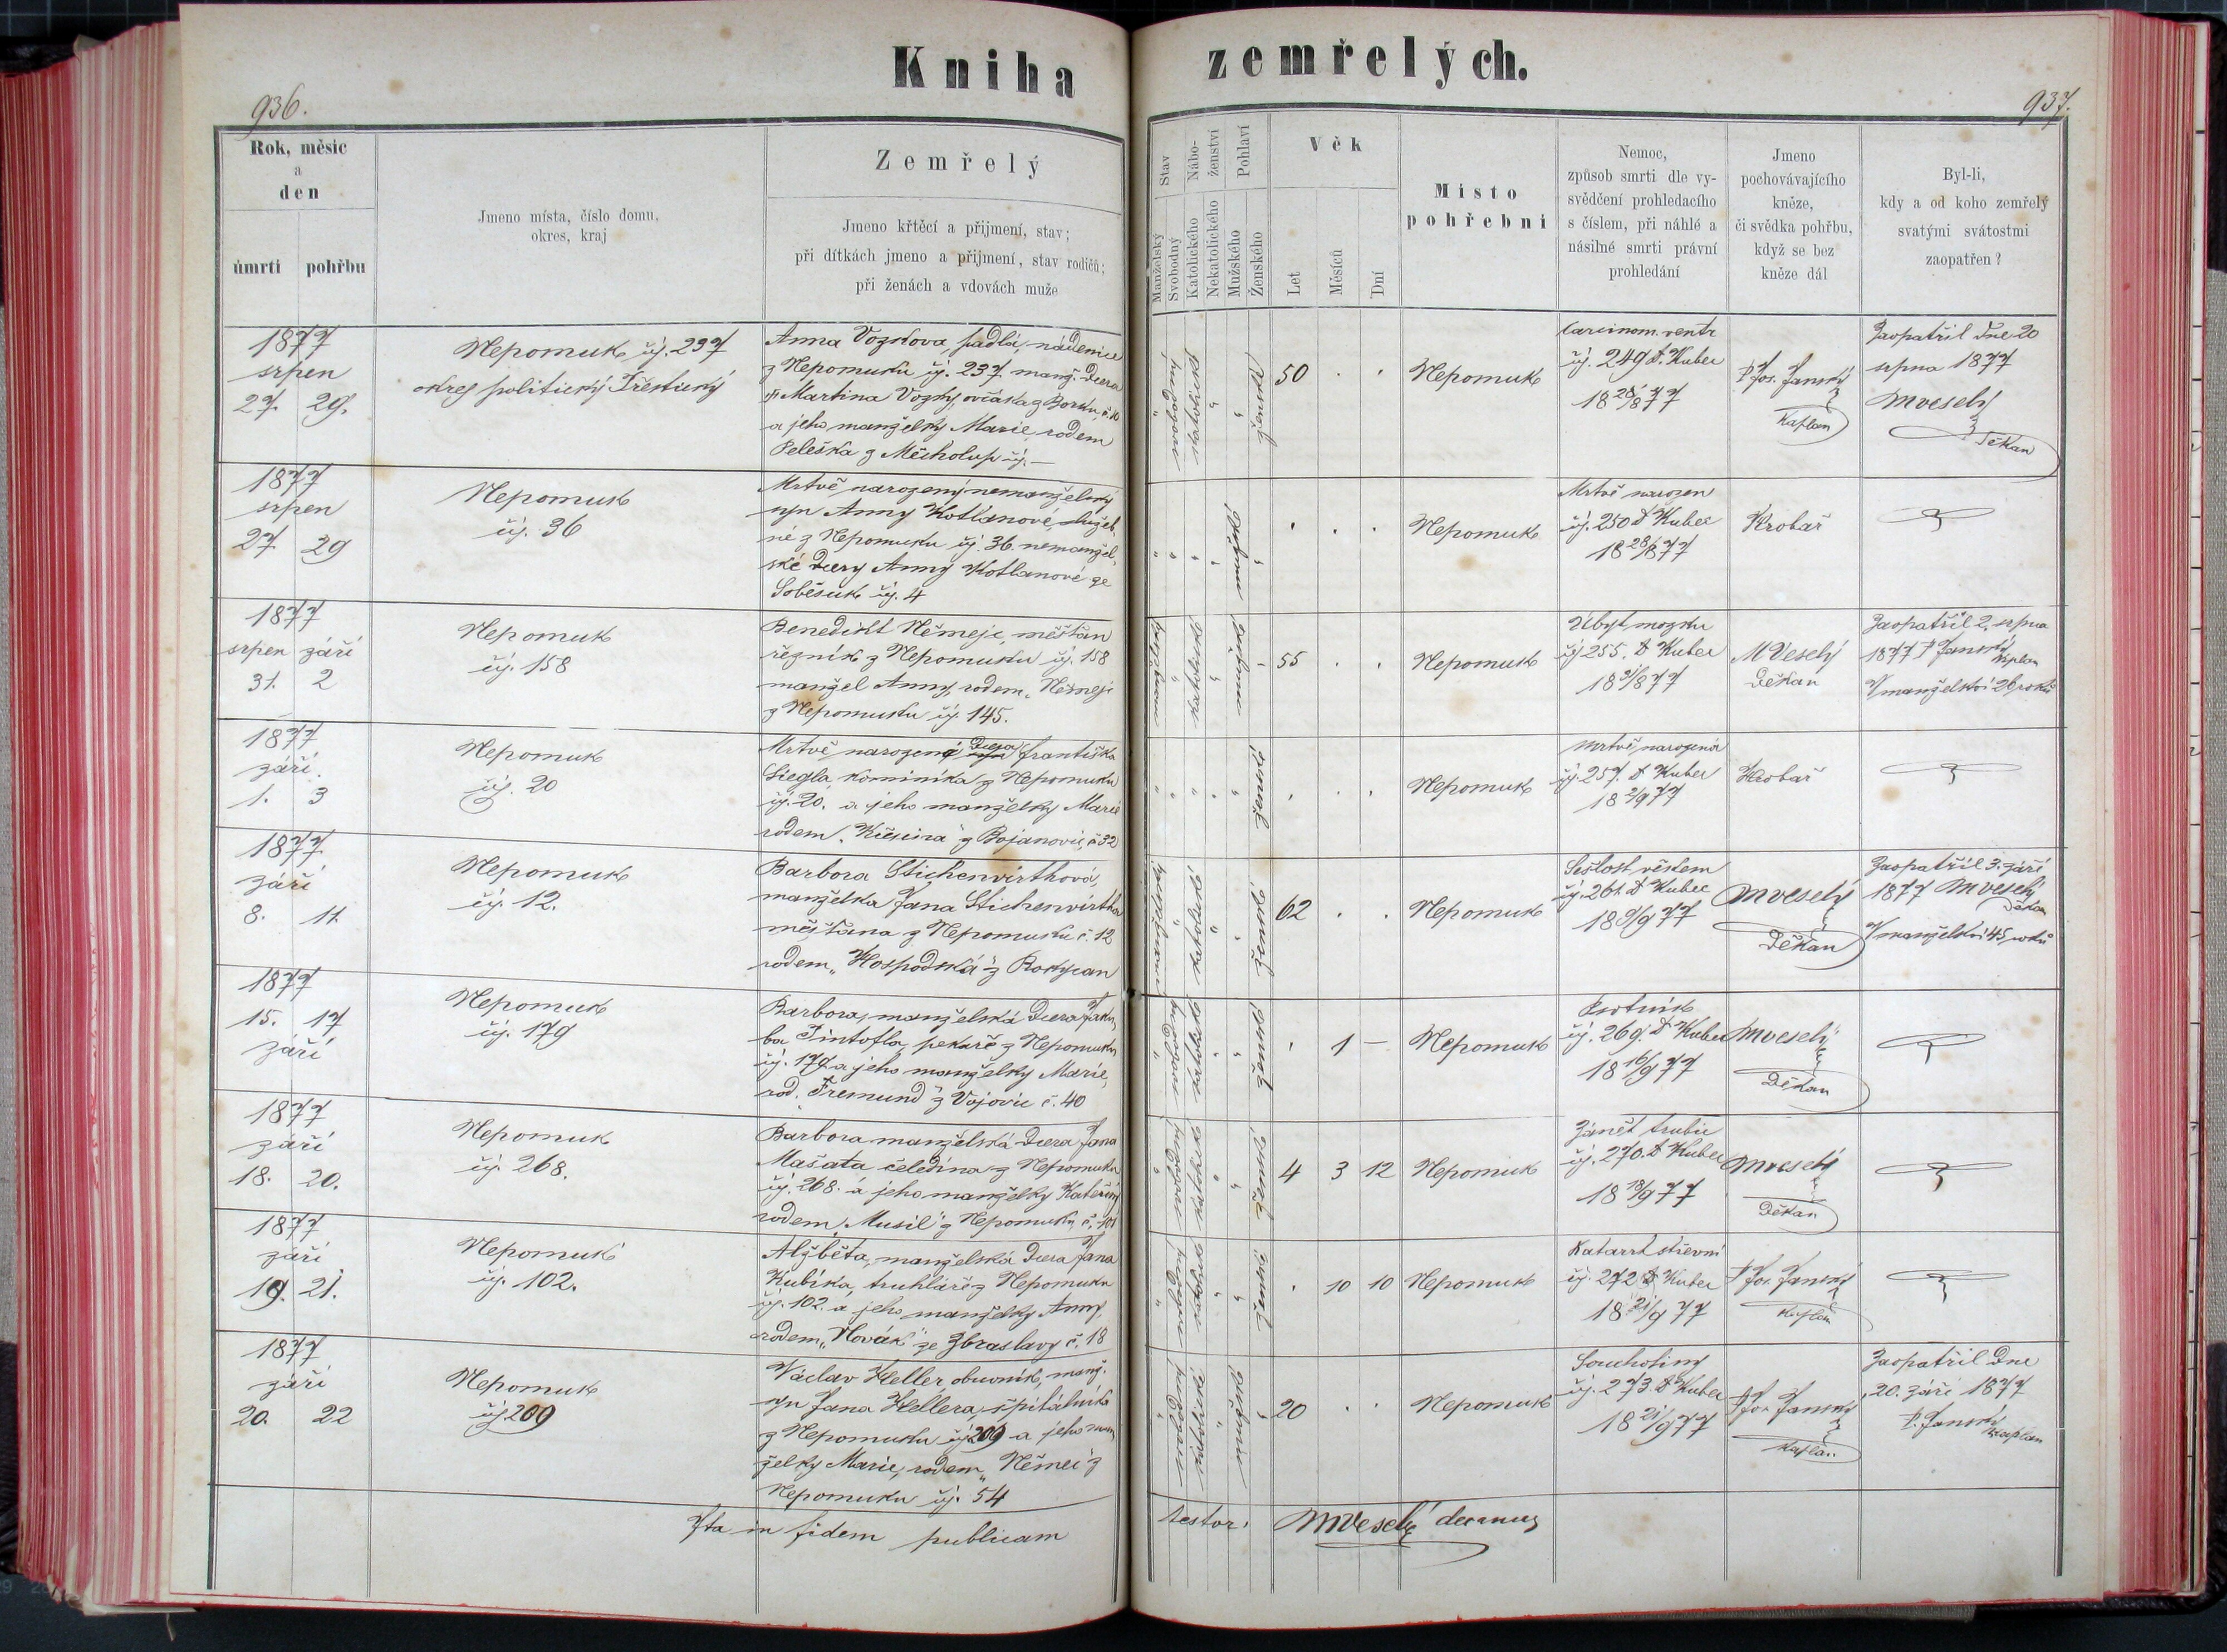 Kniha zemřelých.
936.
937.
Rok, měsíc
a
den
úmrtí pohřbu
Jmeno místa, číslo domu,
okres, kraj
Zemřelý
Jmeno křtěcí a přijmení, stav;
při dítkách jmeno a přijmení, stav rodičů;
při ženách a vdovách muže
Stav
Manželský
Svobodný
Nábo-
ženství
Katolického
Nekatolického
Pohlaví
Mužského
Ženského
Věk
Let
Měsíců
Dní
Místo
pohřební
Nemoc,
způsob smrti dle vy-
svědčení prohledacího
s číslem, při náhlé a
násilné smrti právní
prohledání
Jmeno
pochovávajícího
kněze,
či svědka pohřbu,
když se bez
kněze dál
Byl-li,
kdy a od koho zemřelý
svatými svátostmi
zaopatřen?
1877
srpen
27. 29.
Nepomuk čj. 237
okres politický Přestický
Anna Vozkova, padlá, nádenice
z Nepomuku čj. 237. manž. dcera
Martina Vozky, ovčáka z Borku, č. 10
a jeho manželky Marie, rodem
Peleška z Měcholup čj. —
svobodný
katolické
ženské
50 . .
Nepomuk
Carcinom. ventr
čj. 249 D. Kubec
18 28/8 77
P. Jos. Janský
Kaplan
Zaopatřil dne 20
srpna 1877
MVeselý
Děkan
1877
srpen
27 29
Nepomuk
čj. 36
Mrtvě narozený nemanželský
syn Anny Kotlanové, služeb,
né z Nepomuku čj. 36. nemanžel,
ské dcery Anny Kotlanové ze
Soběsuk čj. 4
mužského
Nepomuk
Mrtvě narozen
čj. 250 D Kubec
18 28/8 77
Hrobař
1877
srpen září
31. 2
Nepomuk
čj. 158
Benedikt Němejc, měšťan
řezník z Nepomuku čj. 158
manžel Anny, rodem „Němejc
z Nepomuku čj. 145.
manželský
katolické
mužské
55 . .
Nepomuk
Úbyt mozku
čj 255. D Kubec
18 31/8 77
MVeselý
Děkan
Zaopatřil 2. srpna
1877 P Janský
Kaplan
V manželství 26 roků
1877
září.
1. 3
Nepomuk
čj. 20
Mrtvě narozená dcera Františka
Siegla, kominíka z Nepomuku
čj. 20. a jeho manželky Marie
rodem z Bojanovic, č 32
ženské
Nepomuk
Mrtvě narozená
čj. 257. D Kubec
18 2/9 77
Hrobař
1877
září
8. 11.
Nepomuk
čj. 12.
Barbora Stichenwirthová,
manželka Jana Stichenwirtha
měšťana z Nepomuku č. 12
rodem „Hospodská" z Rokycan
manželský
katolické
ženské
62 . .
Nepomuk
Sešlost věkem
čj. 261. D Kubec
18 9/9 77
MVeselý
Děkan
Zaopatřil 3. září
1877 MVeselý
Děkan
V manželství 45 roků
1877
15. 17
září
Nepomuk
čj. 179
Barbora, manželská dcera Jaku,
ba Tintofla, pekaře z Nepomuku
čj. 179 a jeho manželky Marie,
rod. Fremund z Vojovic č. 40
svobodný
katolické
ženské
. 1 —
Nepomuk
Psotník
čj. 269. D Kubec
18 16/9 77
MVeselý
Děkan
1877
září
18. 20.
Nepomuk
čj. 268.
Barbora manželská dcera Jana
Mašata čeledína z Nepomuku
čj. 268. a jeho manželky Kateřiny
rodem „Musil" z Nepomuku č. 101
svobodný
katolické
ženské
4 3 12
Nepomuk
Zánět trubic
čj. 270. D Kubec
18 18/9 77
MVeselý
Děkan
1877
září
19. 21.
Nepomuk
čj. 102.
Alžběta, manželská dcera Jana
Kubíka, truhláře z Nepomuku
čj. 102. a jeho manželky Anny,
rodem „Novák" ze Zbraslavy č. 18
svobodný
katolické
ženské
. 10 10
Nepomuk
Katarrh střevní
čj. 272 D Kubec
18 21/9 77
P Jos. Janský
Kaplan
1877
září
20. 22
Nepomuk
čj 209
Václav Heller, obuvník, manž.
syn Jana Hellera, špitálníka
z Nepomuku čj 209 a jeho man,
želky Marie, rodem „Němec" z
Nepomuku čj. 54
svobodný
katolické
mužské
20 . .
Nepomuk
Souchotiny
čj. 273. D Kubec
18 21/9 77
P Jos Janský
Kaplan
Zaopatřil dne
20. září 1877
P. Janský
Kaplan
Ita in fidem publicam
testor: MVeselý decanus